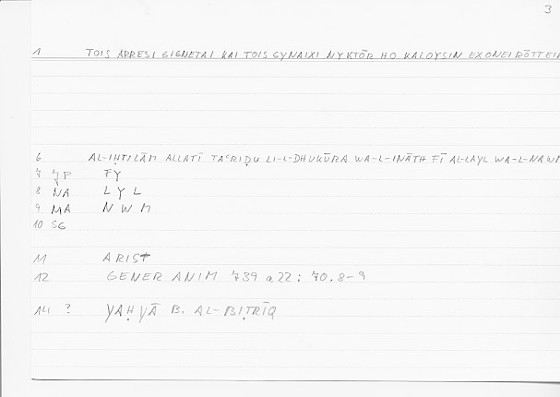 3
1 TOIS ARRESI GIGNETAI KAI TOIS GYNAIXI NYKTŌR HO KALOYSIN EXONEIRŌTTEIN
6 AL-IḤTILĀM ALLATĪ TAʿRIḌU LI-L-DHUKŪRA WA-L-INĀTH FĪ AL-LAYL WA-L-NAWM
7 JP FY
8 NA LYL
9 MA NWM
10 SG
11 ARIST
12 GENER ANIM 739 a22; 70.8-9
14 ? YAḤYĀ B. AL-BIṬRĪQ